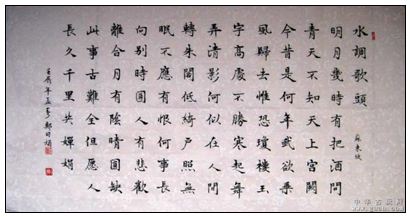 水調歌頭
蘇東坡
明月幾時有把酒問
青天不知天上宮闕
今昔是何年我欲乘
風歸去惟恐瓊樓玉
宇高處不勝寒起舞
弄清影何似在人間
轉朱閣低綺戶照無
眠不應有恨何事長
向別時圓人有悲歡
離合月有陰晴圓缺
此事古難全但愿人
長久千里共嬋娟
年孟
中华古玩网